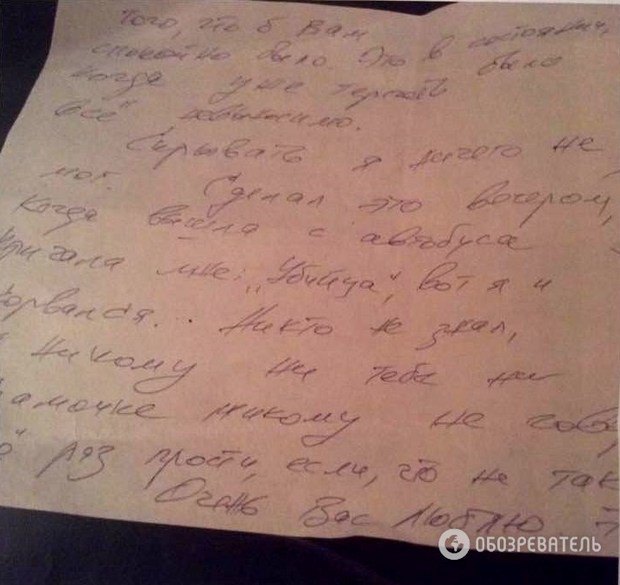 того, что б Вам
спокойно было. Это в состоянии,
когда уже терпеть было
всё невыносимо.
Скрывать я ничего не
мог. Сделал это вечером,
Когда вышла с автобуса
кричала мне: „Убийца", вот я и
сорвался... Никто не знал,
никому ни тебе ни
мамочке никому не гов
раз прости, если, что не так
Очень Вас люблю
ОБОЗРЕВАТЕЛЬ